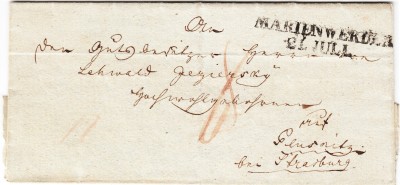 An
MARIENWERDER
21 JULI
den Gutsbesitzer Herrn von
Lehwald Jezierský
Hochwohlgeboren
auf
bei Strasburg